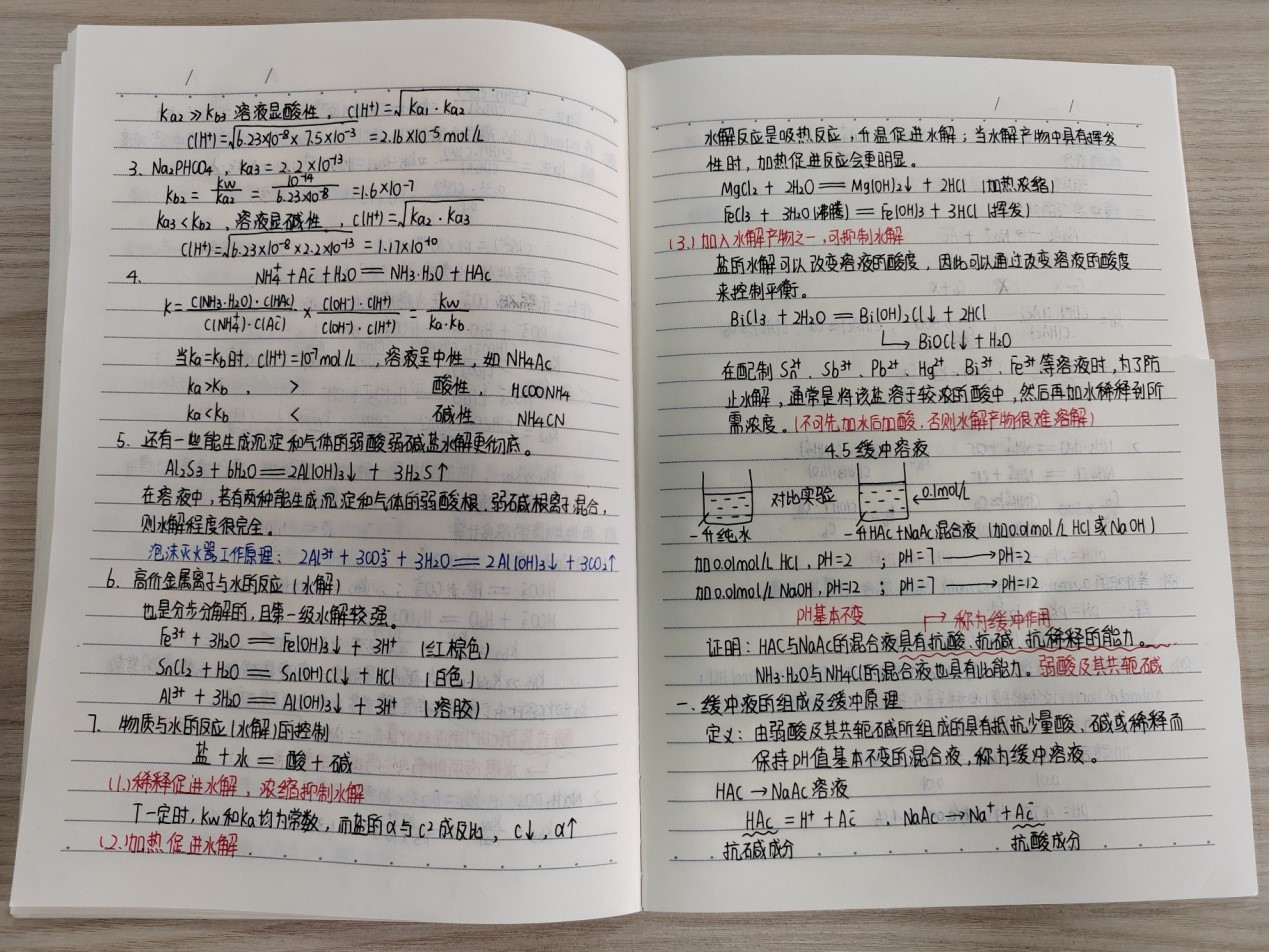 ka2 ≫ kb3 溶液显酸性，C(H⁺)=√ka1·ka2
C(H⁺)=√6.23×10⁻⁸ × 7.5×10⁻³ =2.16×10⁻⁵mol/L
3. Na2PHO4，ka3=2.2×10⁻¹³
kb2 = kw/ka2 = 10⁻¹⁴/6.23×10⁻⁸ =1.6×10⁻⁷
ka3<kb2，溶液显碱性，C(H⁺)=√ka2·ka3
C(H⁺)=√6.23×10⁻⁸×2.2×10⁻¹³ = 1.17×10⁻¹⁰
4. NH4⁺+Ac⁻+H2O══NH3·H2O+HAc
K= C(NH3·H2O)·C(HAc)/C(NH4⁺)·C(Ac⁻) × C(OH⁻)·C(H⁺)/C(OH⁻)·C(H⁺) = kw/ka·kb
当ka=kb时，C(H⁺)=10⁻⁷mol/L，溶液呈中性，如NH4Ac
ka>kb， > 酸性， HCOONH4
ka<kb < 碱性 NH4CN
5. 还有一些能生成沉淀和气体的弱酸弱碱盐水解更彻底。
Al2S3 + 6H2O══2Al(OH)3↓ + 3H2S↑
在溶液中，若有两种能生成沉淀和气体的弱酸根、弱碱根离子混合，
则水解程度很完全。
泡沫灭火器工作原理：2Al³⁺ + 3CO3²⁻ + 3H2O══2Al(OH)3↓ + 3CO2↑
6. 高价金属离子与水的反应(水解)
也是分步分解的，且第一级水解较强。
Fe³⁺ + 3H2O ══ Fe(OH)3↓ + 3H⁺ (红棕色)
SnCl2 + H2O ══ Sn(OH)Cl↓ + HCl (白色)
Al³⁺ + 3H2O ══ Al(OH)3↓ + 3H⁺ (溶胶)
7. 物质与水的反应(水解)的控制
盐+水=酸+碱
(1.)稀释促进水解，浓缩抑制水解
T一定时，kw和ka均为常数，而盐的α与c²成反比，c↓，α↑
(2.)加热促进水解
水解反应是吸热反应，升温促进水解；当水解产物中具有挥发
性时，加热促进反应会更明显。
MgCl2 + 2H2O══Mg(OH)2↓ + 2HCl (加热浓缩)
FeCl3 + 3H2O(沸腾)══Fe(OH)3+3HCl (挥发)
(3.)加入水解产物之一，可抑制水解
盐的水解可以改变溶液的酸度，因此可以通过改变溶液的酸度
来控制平衡。
BiCl3 + 2H2O══Bi(OH)2Cl↓ + 2HCl
↳BiOCl↓ + H2O
在配制Sn²⁺、Sb³⁺、Pb²⁺、Hg²⁺、Bi³⁺、Fe³⁺等溶液时，为了防
止水解，通常是将该盐溶于较浓的酸中，然后再加水稀释到所
需浓度。(不可先加水后加酸，否则水解产物很难溶解)
4.5 缓冲溶液
对比实验 ←0.1mol/L
一升纯水 一升HAc+NaAc混合液 (加0.01mol/L HCl或NaOH)
加0.01mol/L HCl，PH=2 ；PH=7 ⟶PH=2
加0.01mol/L NaOH，PH=12 ；PH=7 ⟶PH=12
PH基本不变 ↱称为缓冲作用
证明：HAC与NaAc的混合液具有抗酸、抗碱、抗稀释的能力。
NH3·H2O与NH4Cl的混合液也具有此能力。弱酸及其共轭碱
一、缓冲液的组成及缓冲原理
定义：由弱酸及其共轭碱所组成的具有抵抗少量酸、碱或稀释而
保持PH值基本不变的混合液，称为缓冲溶液。
HAc→NaAc溶液
HAc = H⁺ + Ac⁻ ，NaAc⟶Na⁺+Ac⁻
抗碱成分 抗酸成分